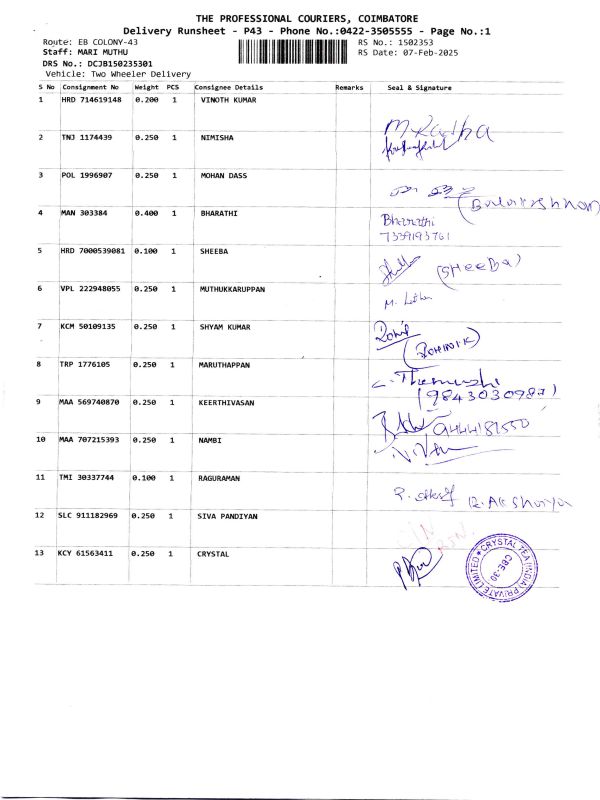 THE PROFESSIONAL COURIERS, COIMBATORE
Delivery Runsheet - P43 - Phone No.:0422-3505555 - Page No.:1
Route: EB COLONY-43 RS No.: 1502353
Staff: MARI MUTHU RS Date: 07-Feb-2025
DRS No.: DCJB150235301
Vehicle: Two Wheeler Delivery
S No Consignment No Weight PCS Consignee Details Remarks Seal & Signature
1 HRD 714619148 0.200 1 VINOTH KUMAR
M. Radha
2 TNJ 1174439 0.250 1 NIMISHA
3 POL 1996907 0.250 1 MOHAN DASS
(Balakrishnan)
4 MAN 303384 0.400 1 BHARATHI Bharathi
7339193761
5 HRD 7000539081 0.100 1 SHEEBA (SHEEBA)
6 VPL 222948055 0.250 1 MUTHUKKARUPPAN M.
7 KCM 50109135 0.250 1 SHYAM KUMAR Rohit
8 TRP 1776105 0.250 1 MARUTHAPPAN
(9843030987)
9 MAA 569740870 0.250 1 KEERTHIVASAN
9444181550
10 MAA 707215393 0.250 1 NAMBI
11 TMI 30337744 0.100 1 RAGURAMAN R. Akshurya
12 SLC 911182969 0.250 1 SIVA PANDIYAN
13 KCY 61563411 0.250 1 CRYSTAL
CRYSTAL TEA (INDIA) PRIVATE LIMITED
CBE-30